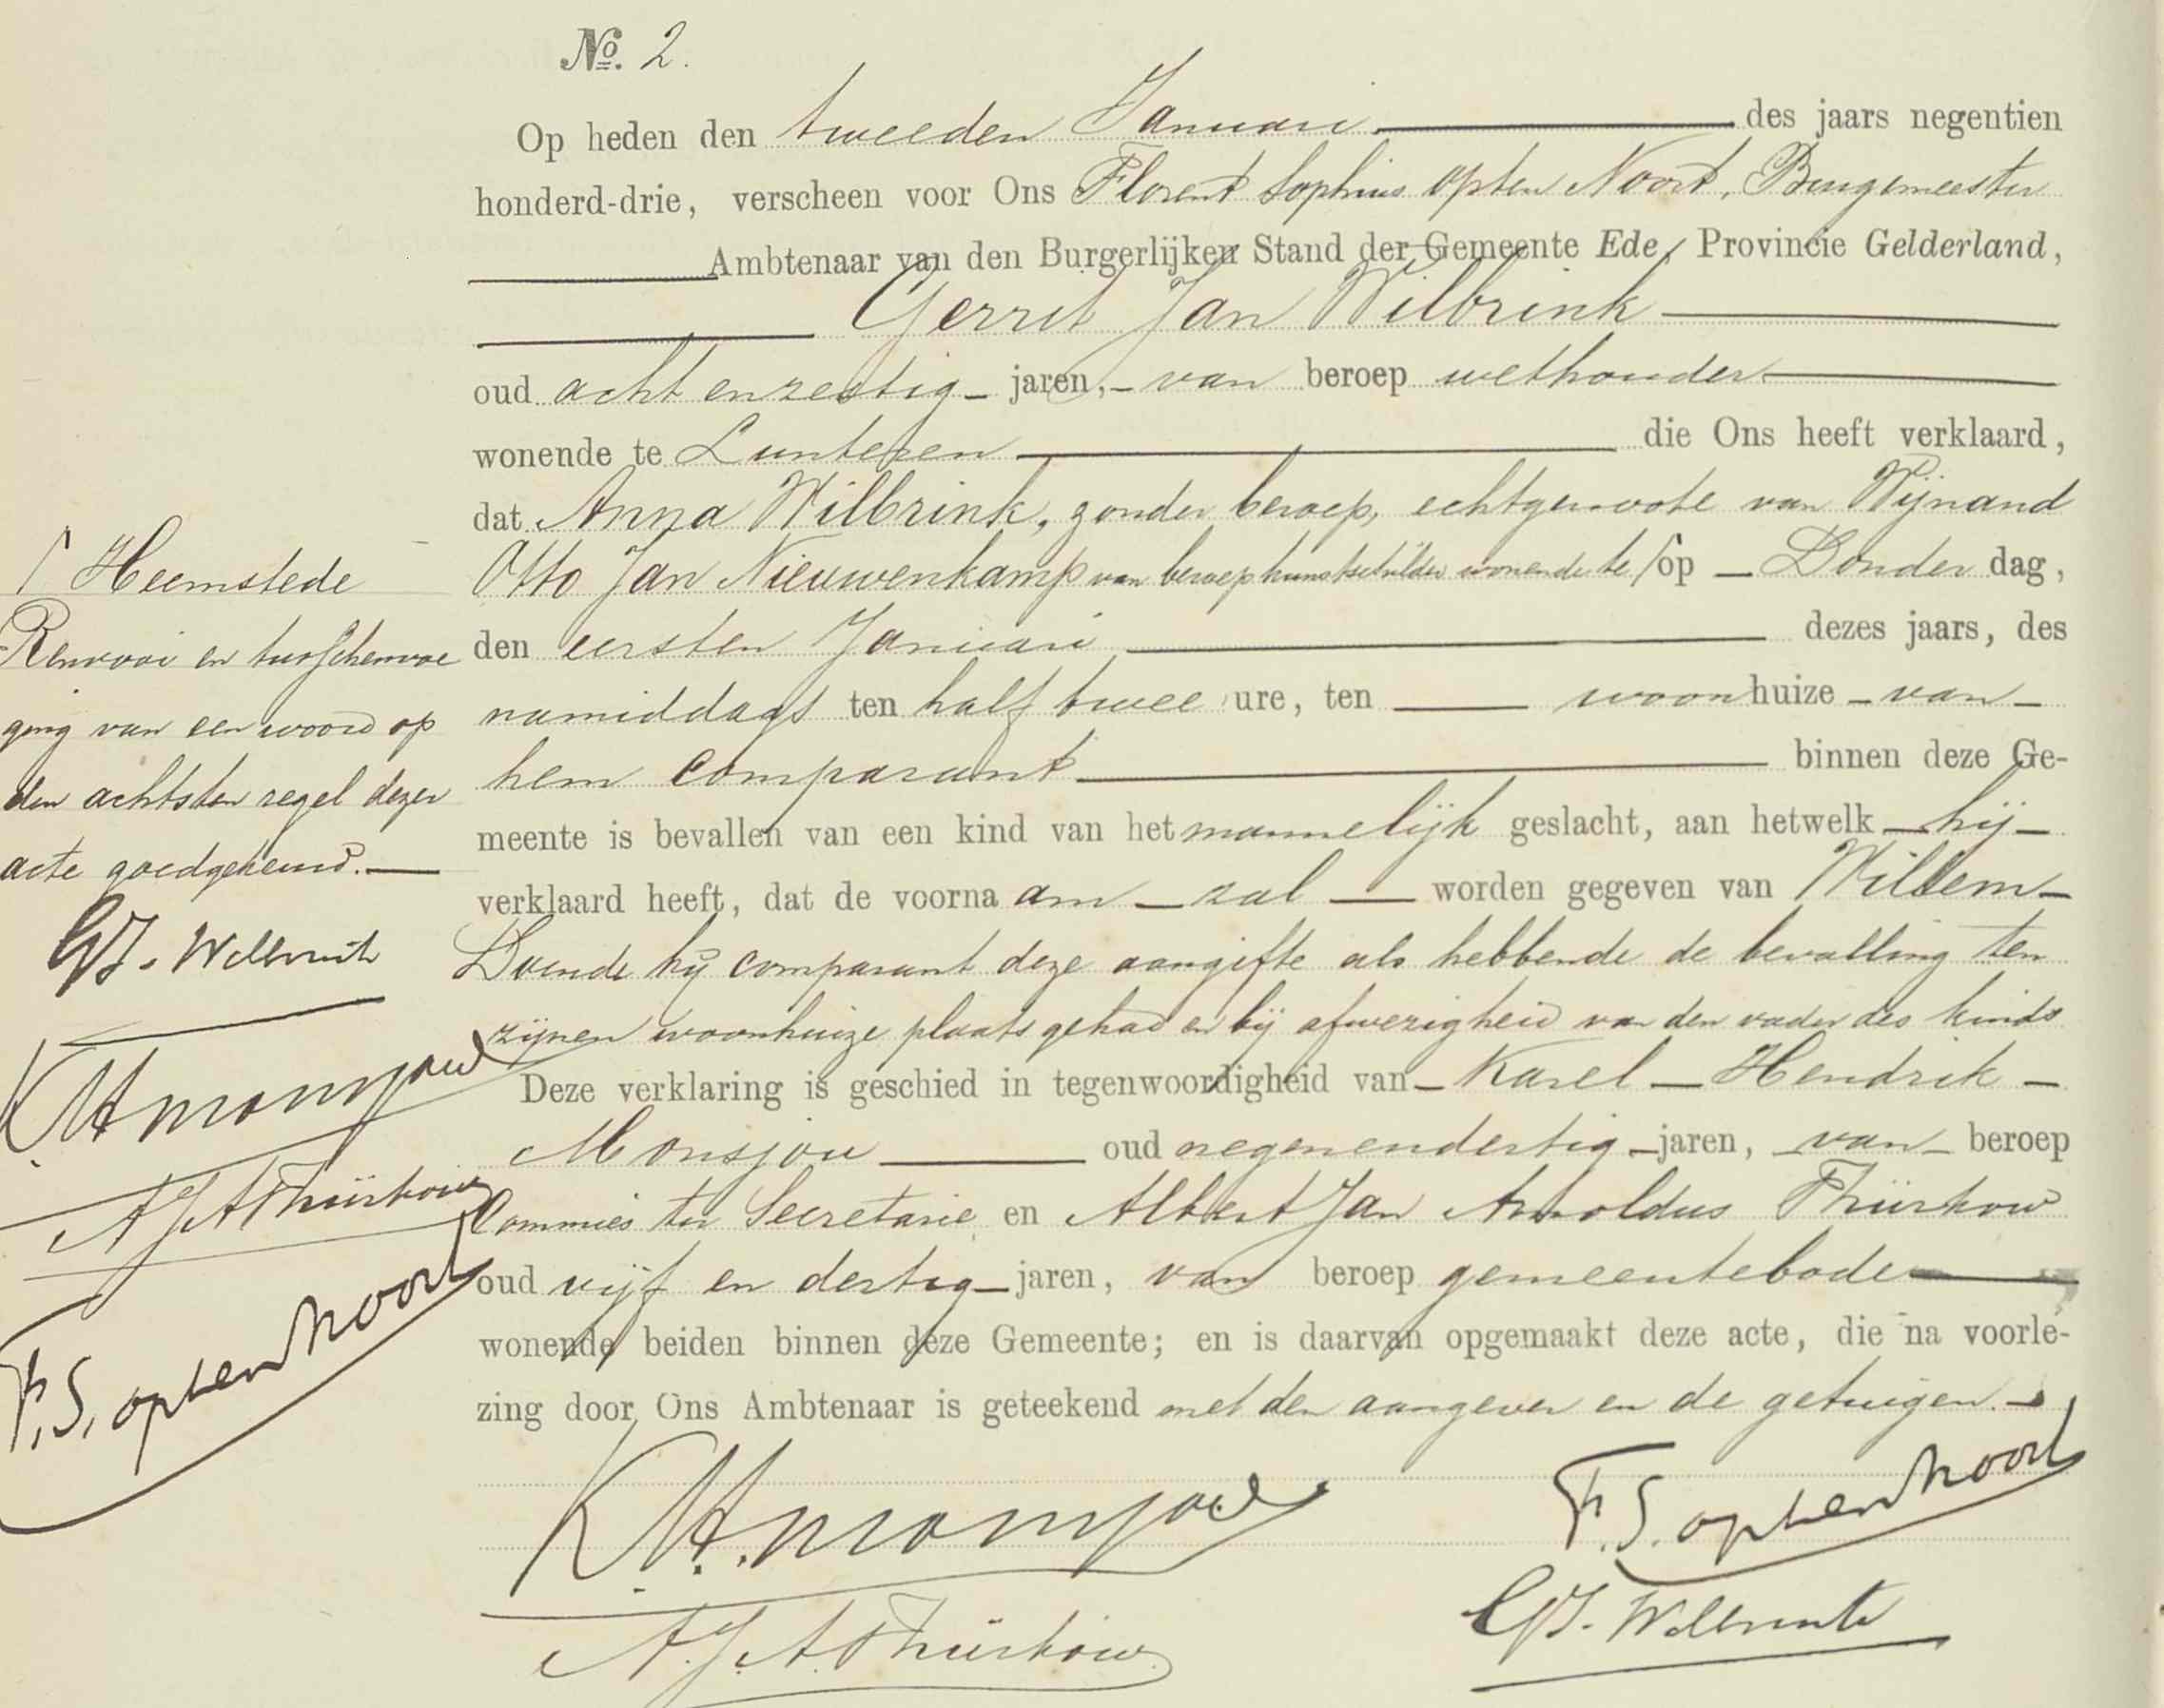 No. 2.
Op heden den tweeden Januari des jaars negentien
honderd-drie, verscheen voor Ons Florent Sophius op ten Noort, Burgemeester
Ambtenaar van den Burgerlijken Stand der Gemeente Ede, Provincie Gelderland,
Gerrit Jan Wilbrink
oud acht en zestig jaren, van beroep wethouder
wonende te Lunteren die Ons heeft verklaard,
dat Anna Wilbrink, zonder beroep, echtgenoote van Wijnand
Otto Jan Nieuwenkamp van beroep kunstschilder wonende te / op Donder dag,
den eersten Januari dezes jaars, des
namiddags ten half twee ure, ten woonhuize van
hem comparant binnen deze Ge-
meente is bevallen van een kind van het mannelijk geslacht, aan hetwelk hij
verklaard heeft, dat de voorna am zal worden gegeven van Willem
Doende hij comparant deze aangifte als hebbende de bevalling ten
zijnen woonhuize plaats gehad en bij afwezigheid van den vader des kinds
Deze verklaring is geschied in tegenwoordigheid van Karel Hendrik
Monsjou oud negenendertig jaren, van beroep
Commies ter Secretarie en Albert Jan Arnoldus Thürkow
oud vijf en dertig jaren, van beroep gemeentebode
wonende beiden binnen deze Gemeente; en is daarvan opgemaakt deze acte, die na voorle-
zing door Ons Ambtenaar is geteekend met den aangever en de getuigen.
KH Monsjou
F. S. op ten Noort
GJ. Wilbrink
A. J. A. Thürkow
/ Heemstede
Renvooi en tusschenvoe
ging van een woord op
den achtsten regel dezer
acte goedgekeurd.
GJ. Wilbrink
KH Monsjou
A J A Thürkow
F. S. op ten Noort